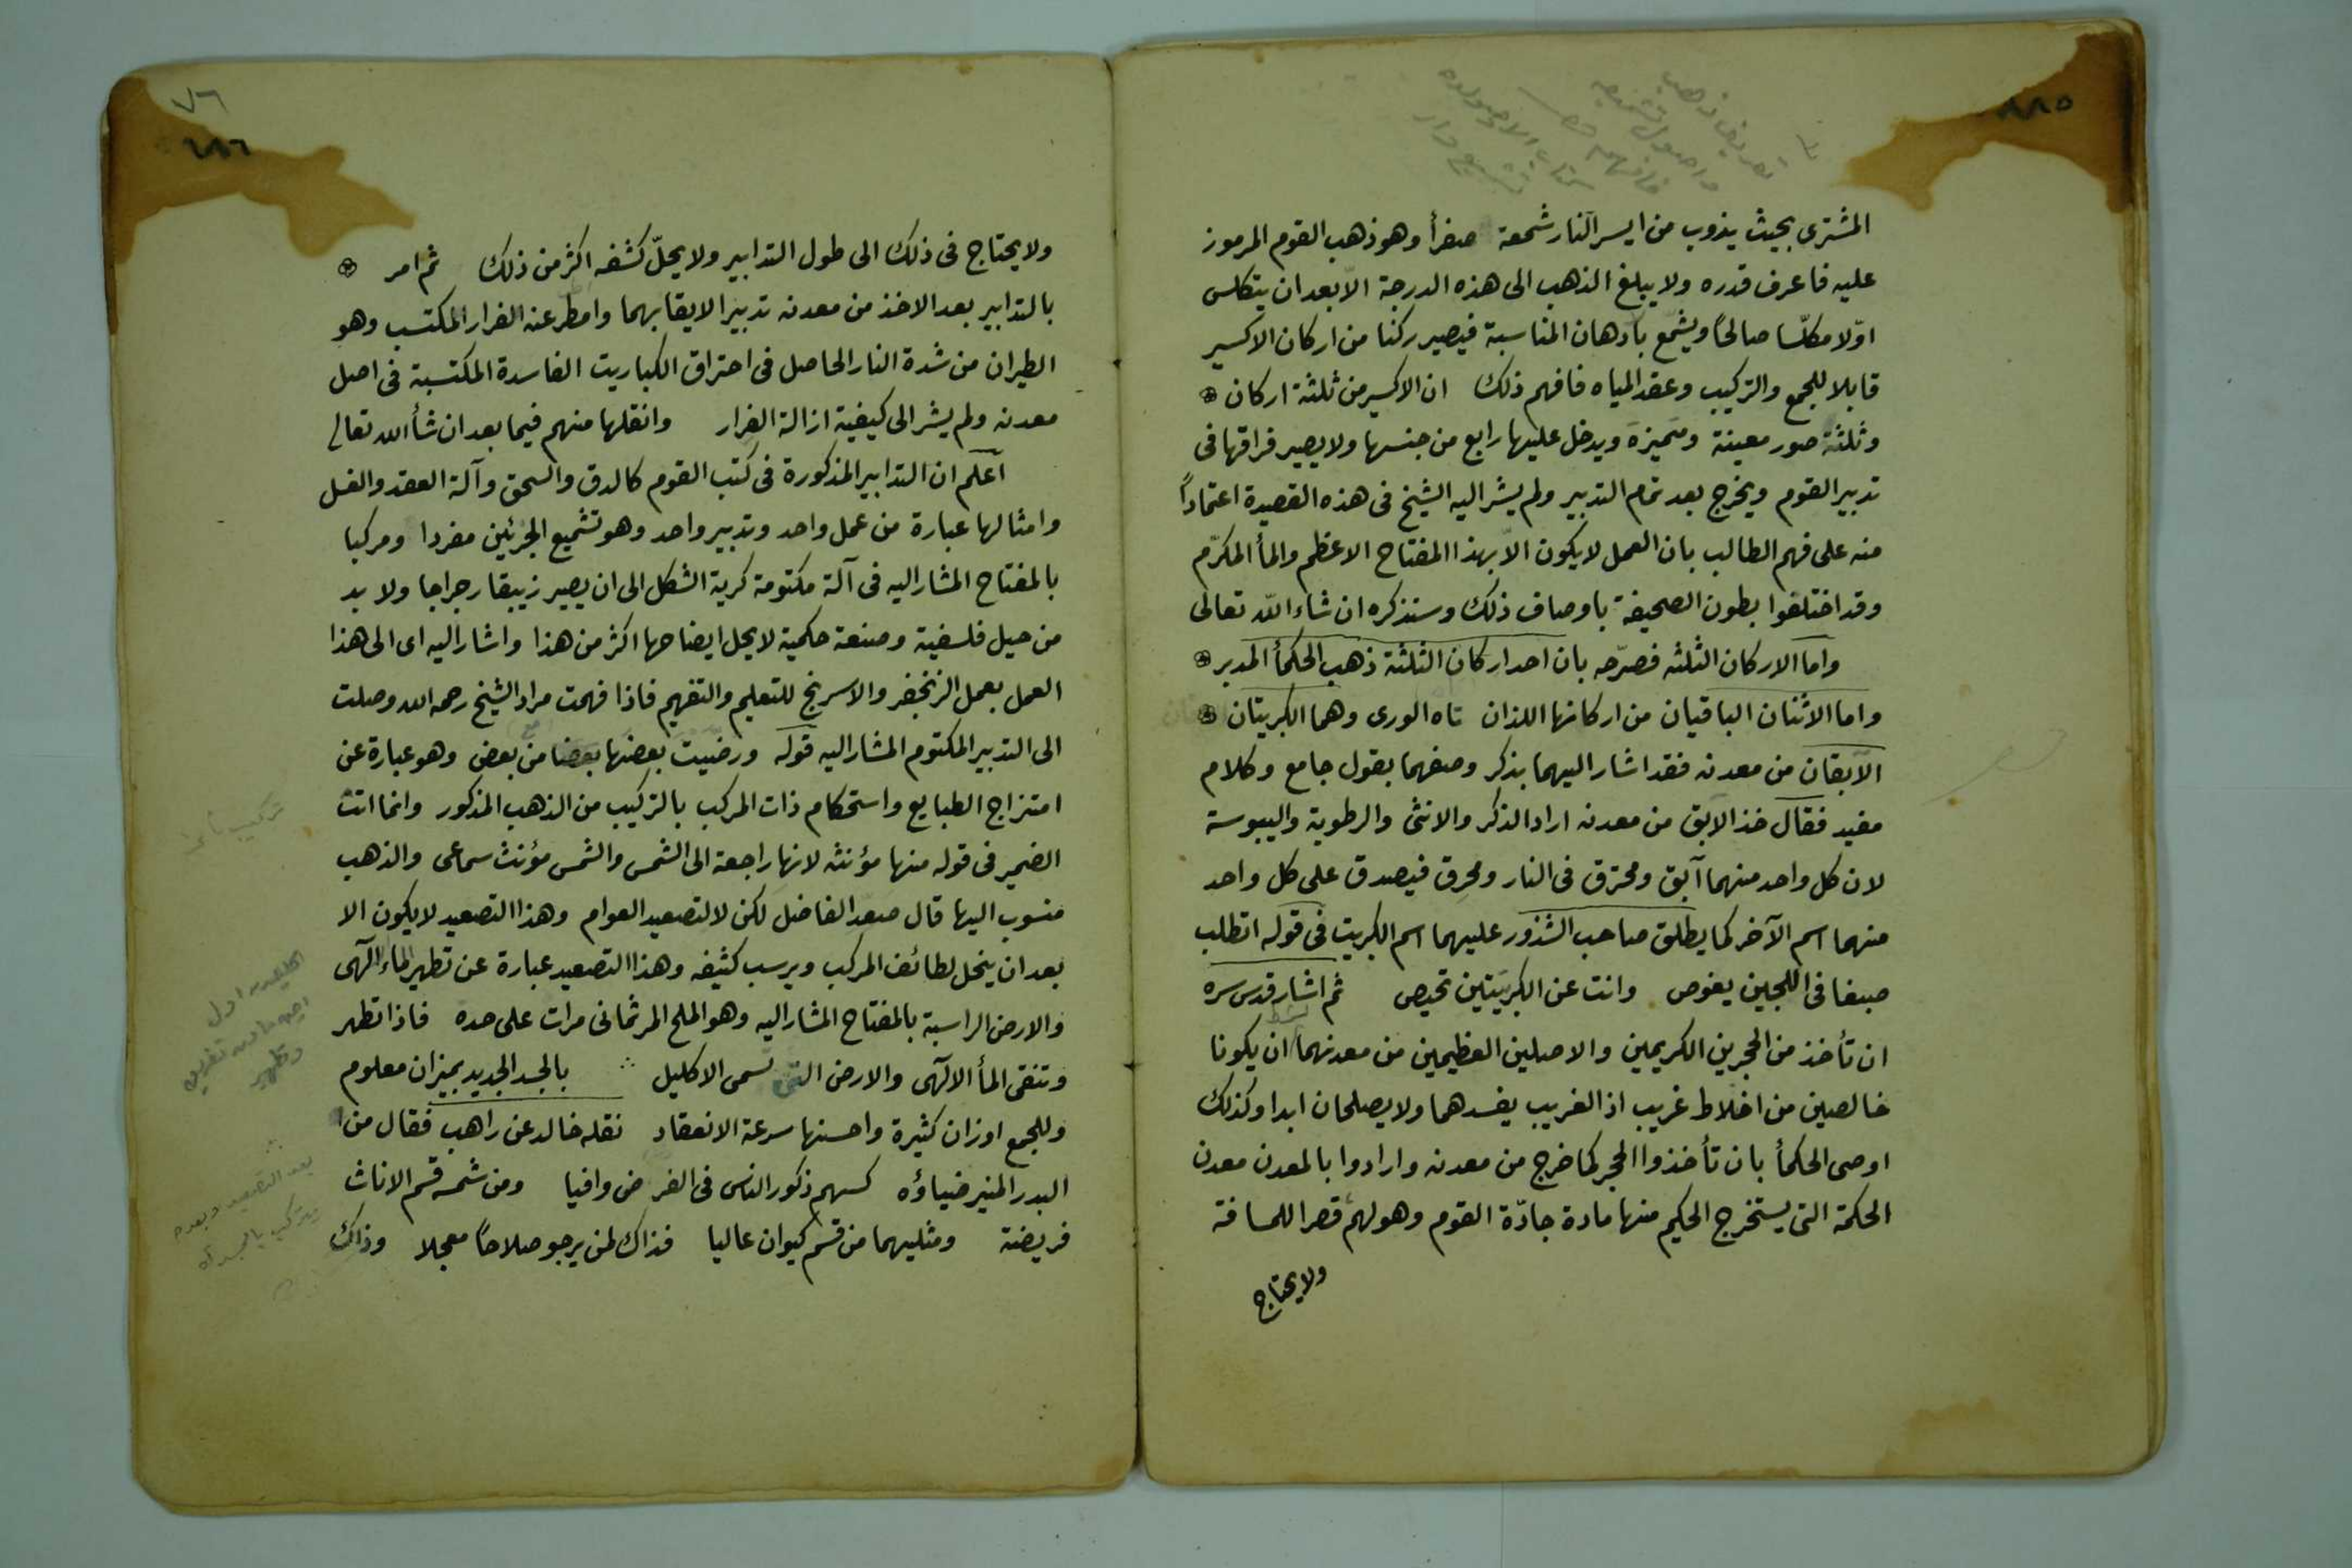 المشترى بحيث يذوب من ايسر النار شمعة صفرأ وهو ذهب القوم المرموز
عليه فاعرف قدره ولا يبلغ الذهب الى هذه الدرجة الّا بعد ان يتكلس
اوّلا مكلّسا صالحًا ويشمّع بادهان المناسبة فيصير ركنا من اركان الاكسير
قابلا للجمع والتركيب وعقد المياه فافهم ذلك ان الاكسير من ثلثة اركان
وثلثة صور معينة ومتميزة ويدخل عليها رابع من جنسها ولا يصير فراقها فى
تدبير القوم ويخرج بعد تمام التدبير ولم يشر اليه الشيخ فى هذه القصيدة اعتمادًا
منه على فهم الطالب بان العمل لا يكون الّا بهذا المفتاح الاعظم والمأ المكرّم
وقد اختلقوا بطون الصحيفة باوصاف ذلك وسنذكره ان شاء اللّه تعالى
واما الاركان الثلثه فصرّحه بان احد اركان الثلثة ذهب الحكمأ المدبر
واما الاثنان الباقيان من اركانها اللذان تاه الورى وهما الكبريتان
الآبقان من معدنه فقد اشار اليهما بذكر وصفهما بقول جامع وكلام
مفيد فقال خذ الابق من معدنه اراد الذكر والانثى والرطوبة واليبوسة
لان كل واحد منهما آبق ومحترق فى النار ومحرق فيصدق على كل واحد
منهما اسم الآخر كما يطلق صاحب الشذور عليهما اسم الكبريت فى قوله اتطلب
صبغا فى اللجين يغوص وانت عن الكبريتين تحيص ثم اشار قدس سره
ان تأخذ من الحجرين الكريمين والاصلين العظيمين من معدنهما بشرط ان يكونا
خالصين من اخلاط غريب اذ الغريب يفسدهما ولا يصلحان ابدا وكذلك
اوصى الحكمأ بان تأخذوا الحجر كما خرج من معدنه وارادوا بالمعدن معدن
الحكمة التى يستخرج الحكيم منها مادة جادّة القوم وهو لهم قصر اللمسافة
ولا يحتاج
٧٦
ولا يحتاج فى ذلك الى طول التدابير ولا يحلّ كشفه اكثر من ذلك ثم امر
بالتدابير بعد الاخذ من معدنه تدبير الايقا بهما وامطر عنه الفرار المكتسب وهو
الطيران من شدة النار الحاصل فى احتراق الكباريت الفاسدة المكتسبة فى اصل
معدنه ولم يشر الى كيفية ازالة الفرار وانقلها منهم فيما بعد ان شأ الله تعالى
اعلم ان التدابير المذكورة فى كتب القوم كالدق والسحق وآلة العقد والغسل
وامثالها عبارة من عمل واحد وتدبير واحد وهو تشميع الجزئين مفردا ومركبا
بالمفتاح المشار اليه فى آلة مكتومة كرية الشكل الى ان يصير زيبقا رجراجا ولا بد
من حيل فلسفية وصنعة حكمية لا يحل ايضاحها اكثر من هذا واشار اليه اى الى هذا
العمل بعمل الزنجفر والاسرنج للتعليم والتفهيم فاذا فهمت مراد الشيخ رحمه الله وصلت
الى التدبير المكتوم المشار اليه قوله ورضيت بعضها بعضا من بعض وهو عبارة عن
امتزاج الطبايع واستحكام ذات المركب بالتركيب من الذهب المذكور وانما انث
الضمير فى قوله منها مؤنثه لانها راجعة الى الشمس والشمس مؤنث سماعى والذهب
منسوب اليها قال صعد الفاضل لكن لا لتصعيد العوام وهذا التصعيد لا يكون الا
بعد ان ينحل لطائف المركب ويرسب كثيفه وهذا التصعيد عبارة عن تطهير الماء الآلهى
والارض الراسبة بالمفتاح المشار اليه وهو الملح المر ثمانى مرات على حدة فاذا تطهر
وتنقى المأ الالهى والارض التى تسمى الاكليل بالجسد الجديد بميزان معلوم
وللجمع اوزان كثيرة واحسنها سرعة الانعقاد نقله خالد عن راهب فقال من
البدر المنير ضياؤه كسهم ذكور الناس فى الفرض وافيا ومن شمسه قسم الاناث
فريضة ومثليهما من قسم كيوان عاليا فذاك لمن يرجو صلاحًا معجلا وذاك